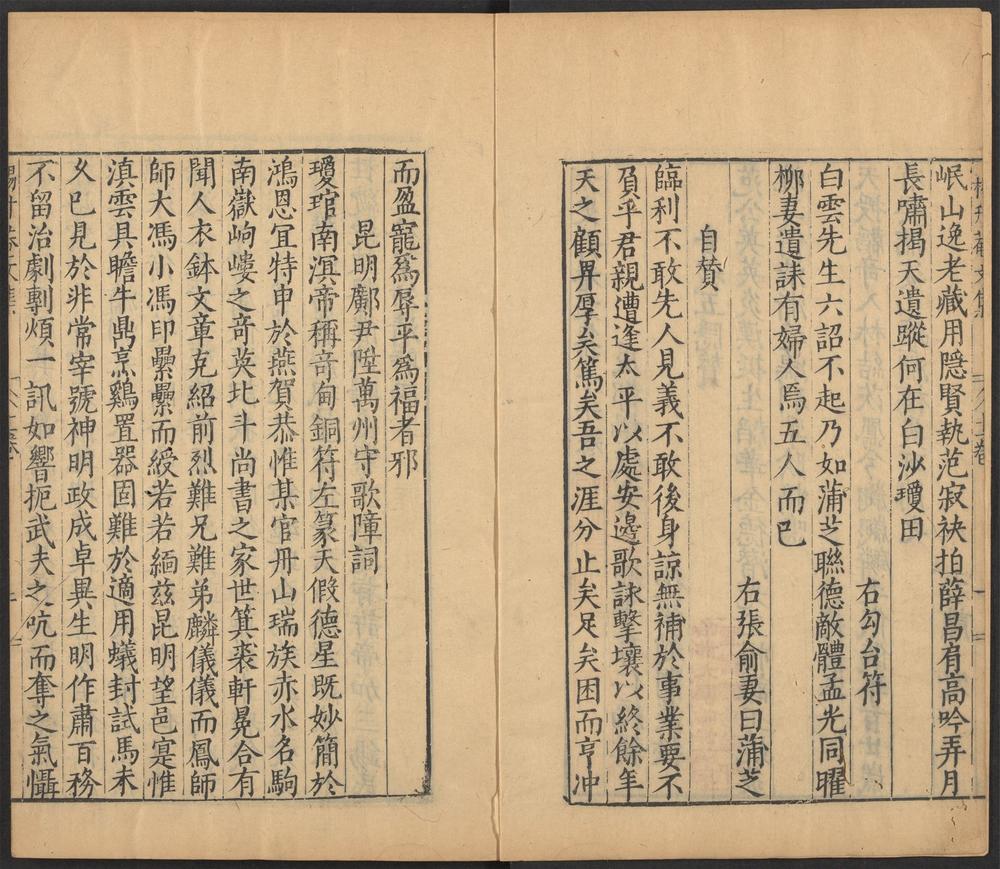 岷山逸老藏用隱賢執范寂袂拍薛昌肩高吟弄月
長嘯揭天遺蹤何在白沙瓊田
右勾台符
白雲先生六詔不起乃如蒲芝聯德敵體孟光同曜
柳妻遺誄有婦人焉五人而已
右張俞妻曰蒲芝
自贊
臨利不敢先人見義不敢後身諒無補於事業要不
負乎君親遭逢太平以處安邊歌詠擊壤以終餘年
天之顧畀厚矣篤矣吾之涯分止矣足矣困而亨冲
而盈寵爲辱平爲福者邪
昆明鄺尹陞萬州守歌障詞
瓊琯南溟帝稱竒甸銅符左篆天假德星既妙簡於
鴻恩冝特申於燕賀恭惟某官冊山瑞族赤水名駒
南嶽岣嶁之竒英比斗尚書之家世箕裘軒冕合有
聞人衣鉢文章克紹前烈難兄難弟麟儀儀而鳳師
師大馮小馮印纍纍而綬若若緬兹昆明望邑寔惟
滇雲具瞻牛鼎烹鷄置器固難於適用蟻封試馬未
久已見於非常宰號神明政成卓異生明作肅百務
不留治劇剸煩一訊如響扼武夫之吭而奪之氣懾